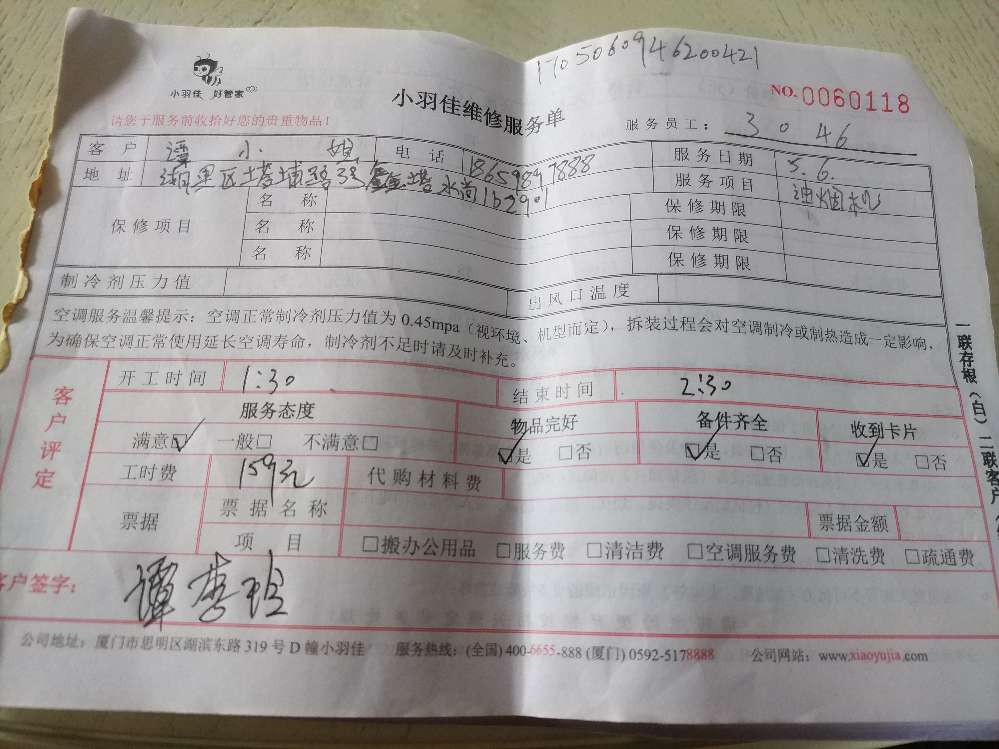 1705060946200421
小羽佳 好管家
小羽佳维修服务单
NO.0060118
请您于服务前收拾好您的贵重物品！
服务员工： 3046
客户 谭小姐 电话 18659897888 服务日期 5.6.
地址 湖里区塔埔路 水岸1b2901 服务项目 油烟机
保修项目 名称 保修期限
名称 保修期限
名称 保修期限
制冷剂压力值 出风口温度
空调服务温馨提示：空调正常制冷剂压力值为0.45mpa（视环境、机型而定），拆装过程会对空调制冷或制热造成一定影响，
为确保空调正常使用延长空调寿命，制冷剂不足时请及时补充。
客户评定
开工时间 1:30 结束时间 2:30
服务态度 物品完好 备件齐全 收到卡片
满意☑ 一般□ 不满意□ ☑是 □否 ☑是 □否 ☑是 □否
工时费 159元 代购材料费
票据 票据名称 票据金额
项目 □搬办公用品 □服务费 □清洁费 □空调服务费 □清洗费 □疏通费
客户签字：
公司地址：厦门市思明区湖滨东路319号D幢小羽佳 服务热线：(全国) 400-6655-888 (厦门) 0592-5178888 公司网站：www.xiaoyujia.com
一联存根（白）二联客户